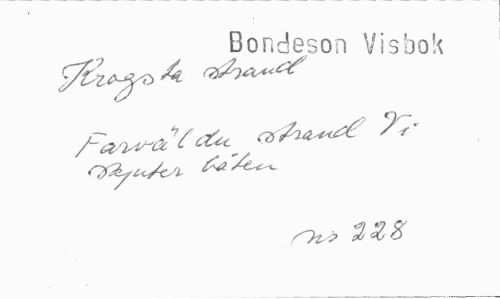 Bondeson Visbok
Krogsta strand
Farväl du strand Vi
skjuter båten
nr 228